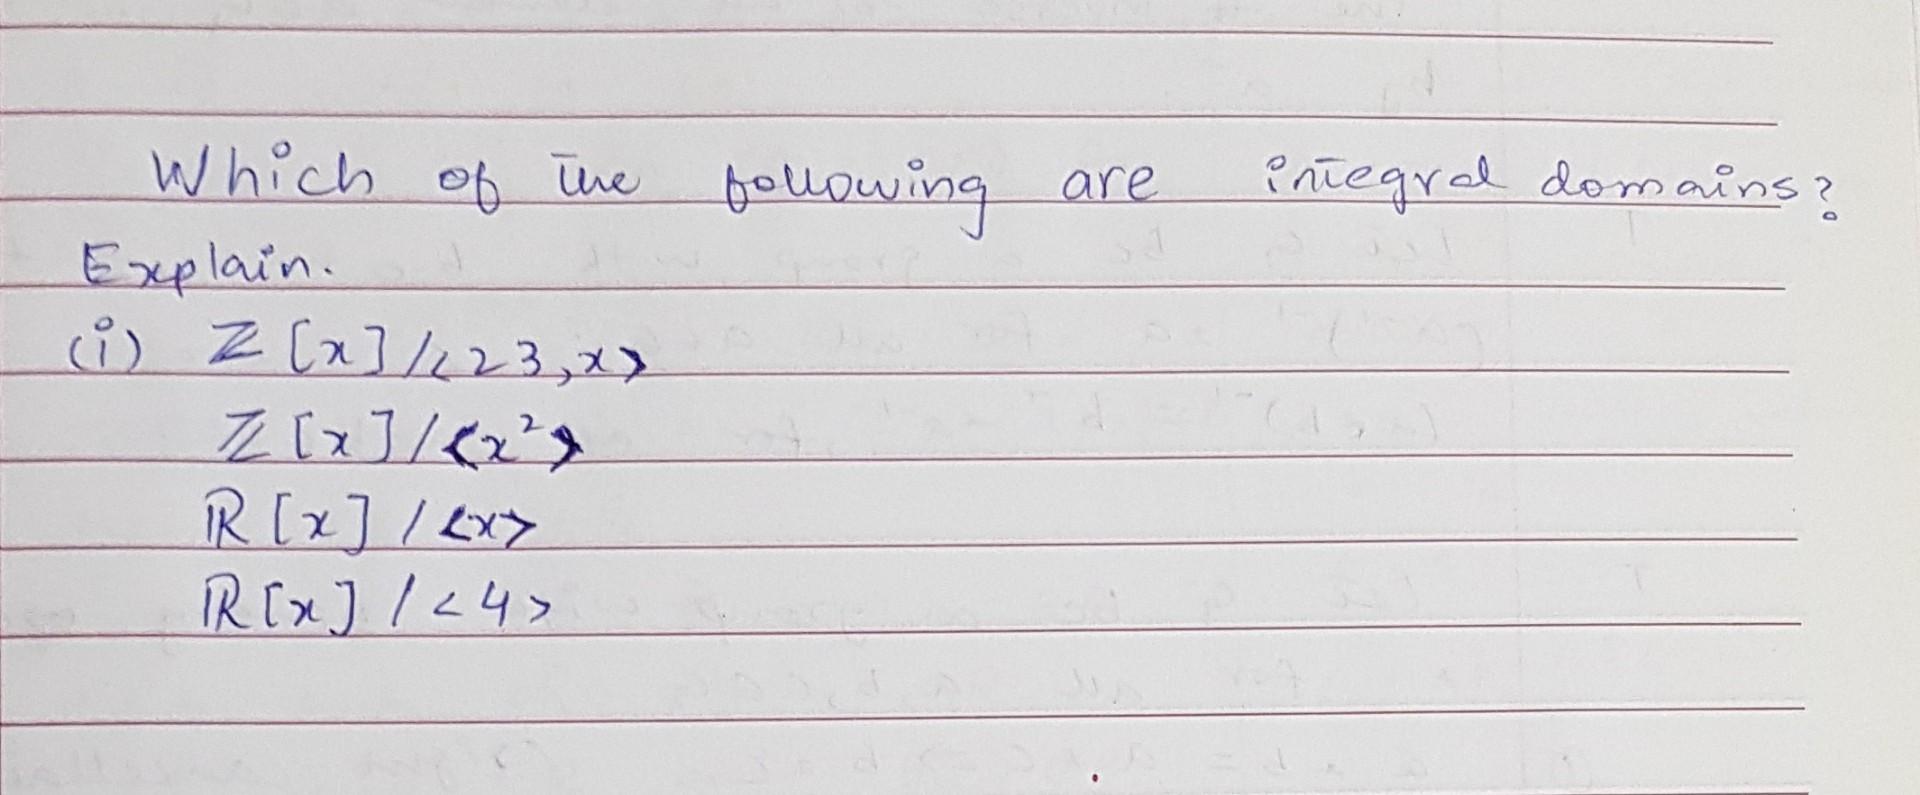 Which of the following are integral domains?
Explain.
(i) ℤ[x]/<23,x>
ℤ[x]/<x²>
ℝ[x]/<x>
ℝ[x]/<4>